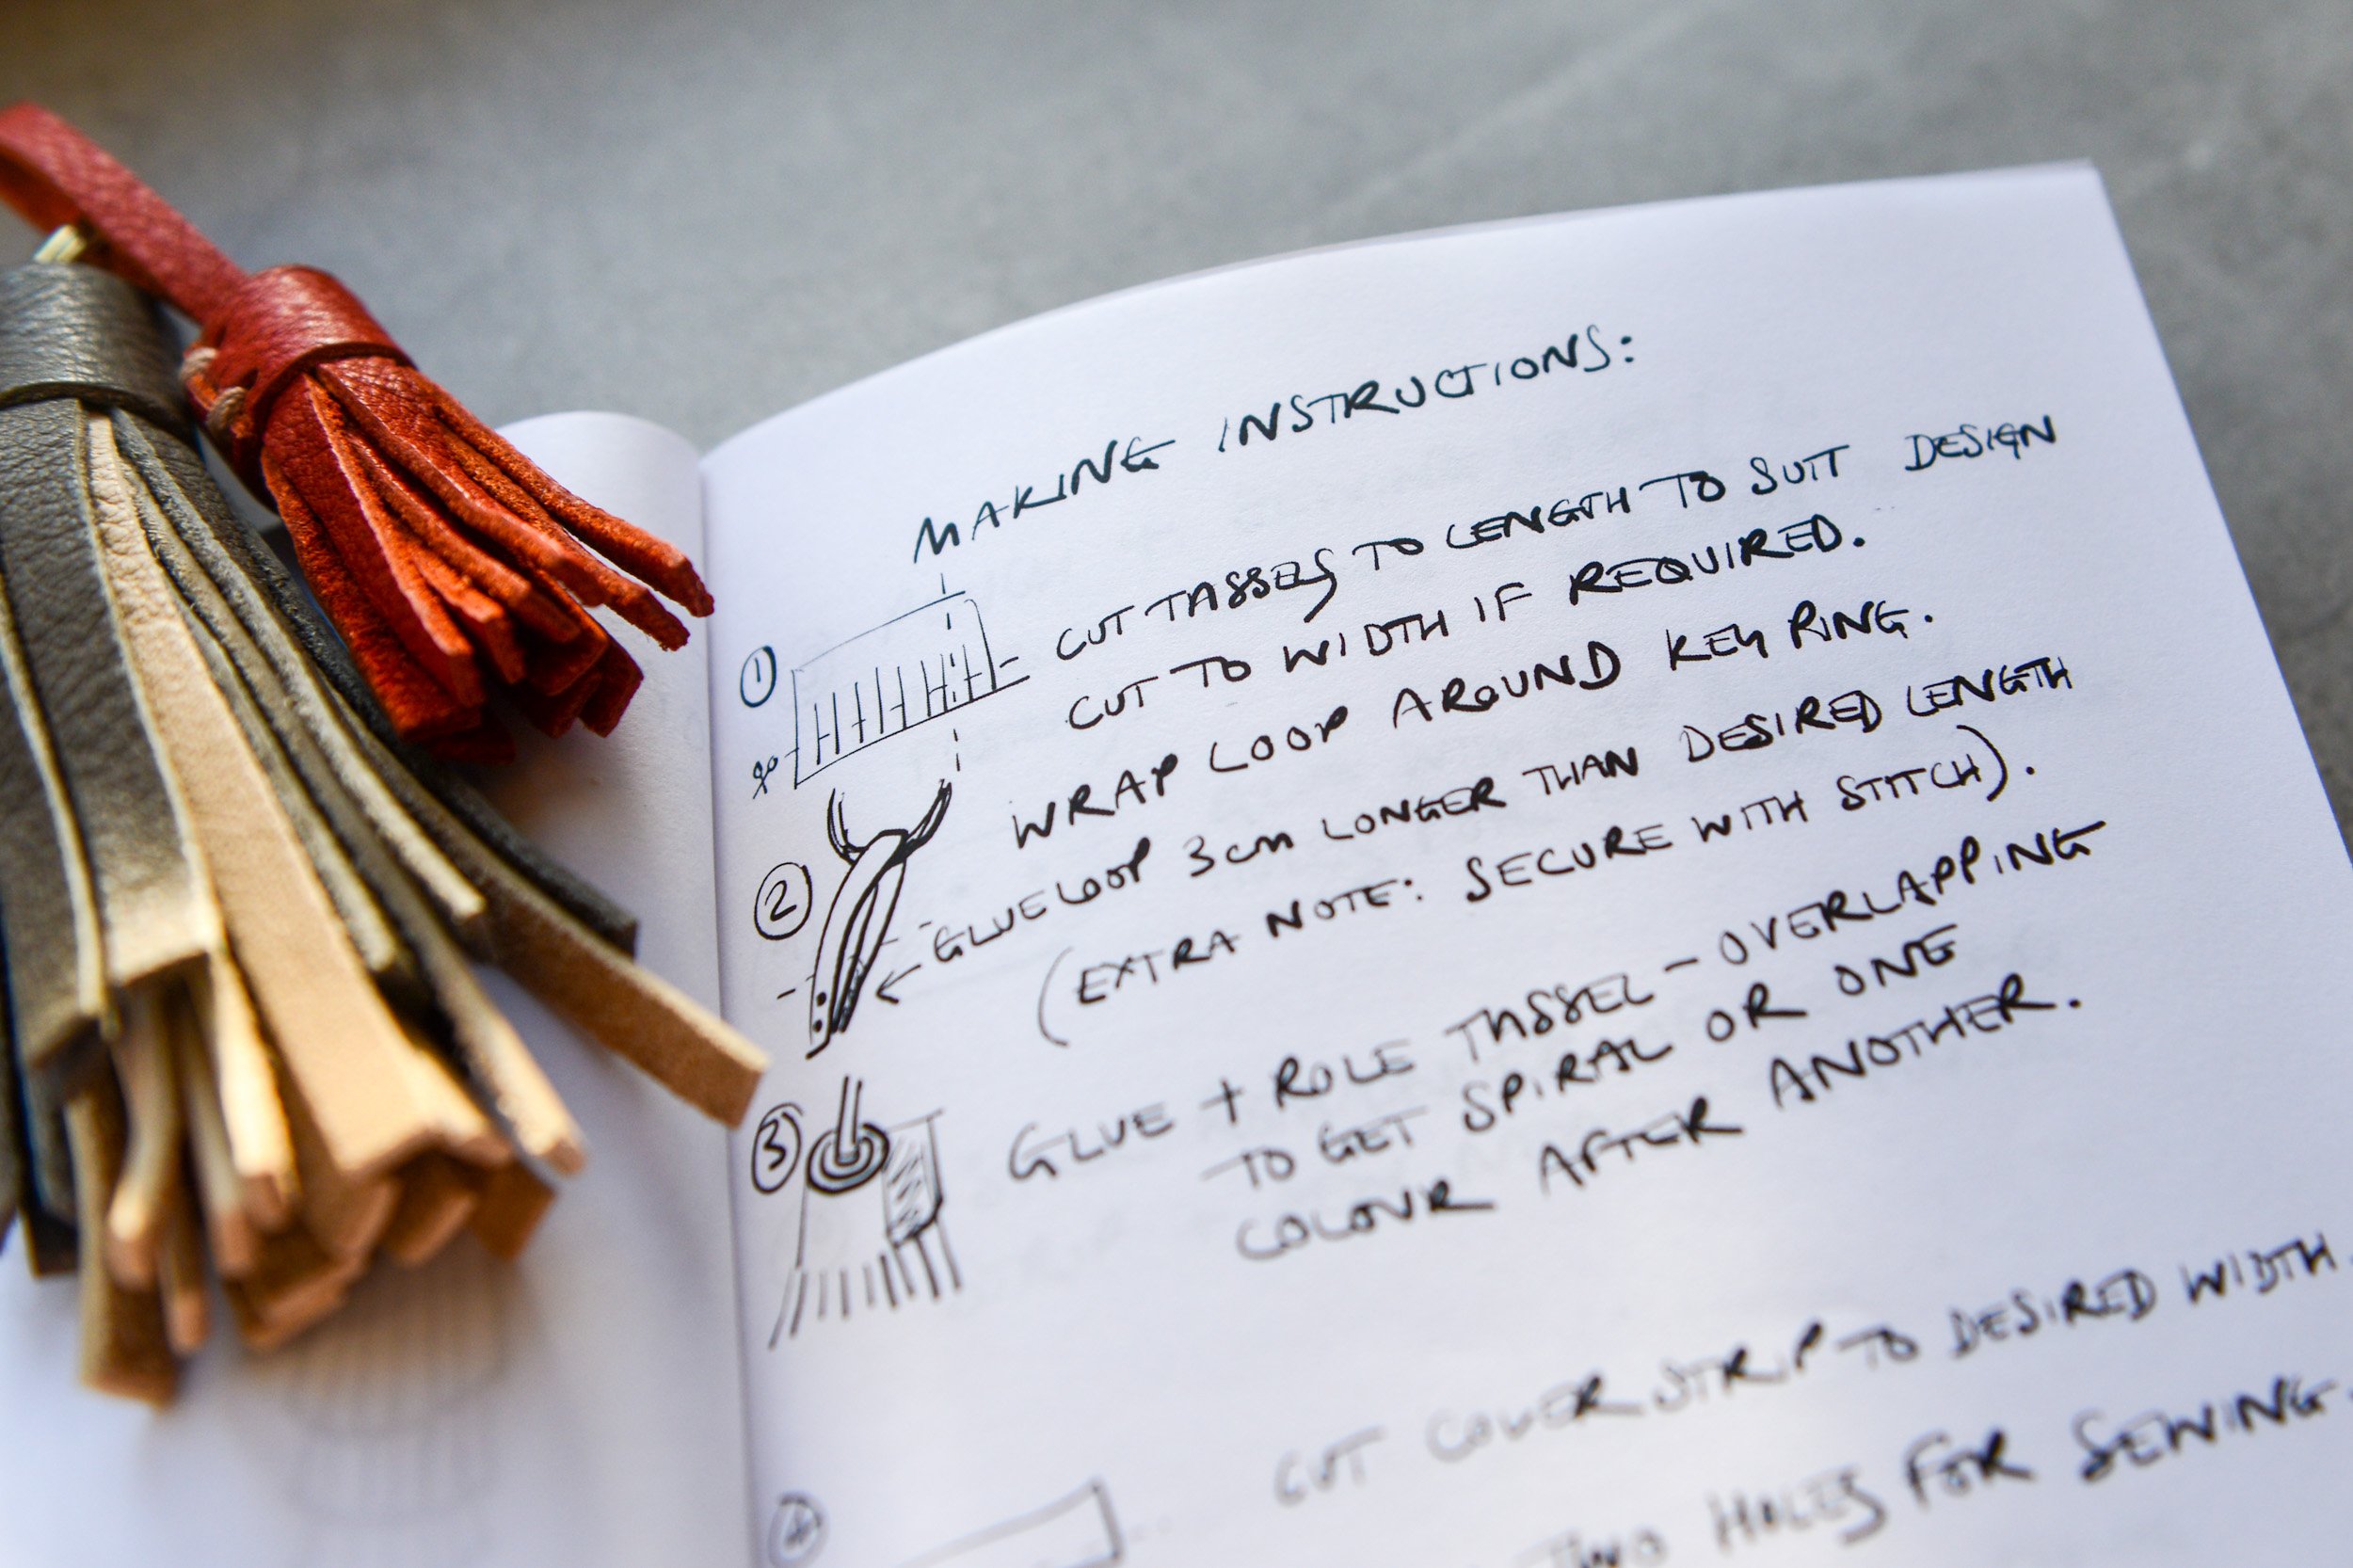 MAKING INSTRUCTIONS:
① CUT TASSELS TO LENGTH TO SUIT DESIGN
CUT TO WIDTH IF REQUIRED.
② WRAP LOOP AROUND KEY RING.
GLUE LOOP 3cm LONGER THAN DESIRED LENGTH
(EXTRA NOTE: SECURE WITH STITCH).
③ GLUE + ROLE TASSEL – OVERLAPPING
TO GET SPIRAL OR ONE
COLOUR AFTER ANOTHER.
④ CUT COVER STRIP TO DESIRED WIDTH.
TWO HOLES FOR SEWING.